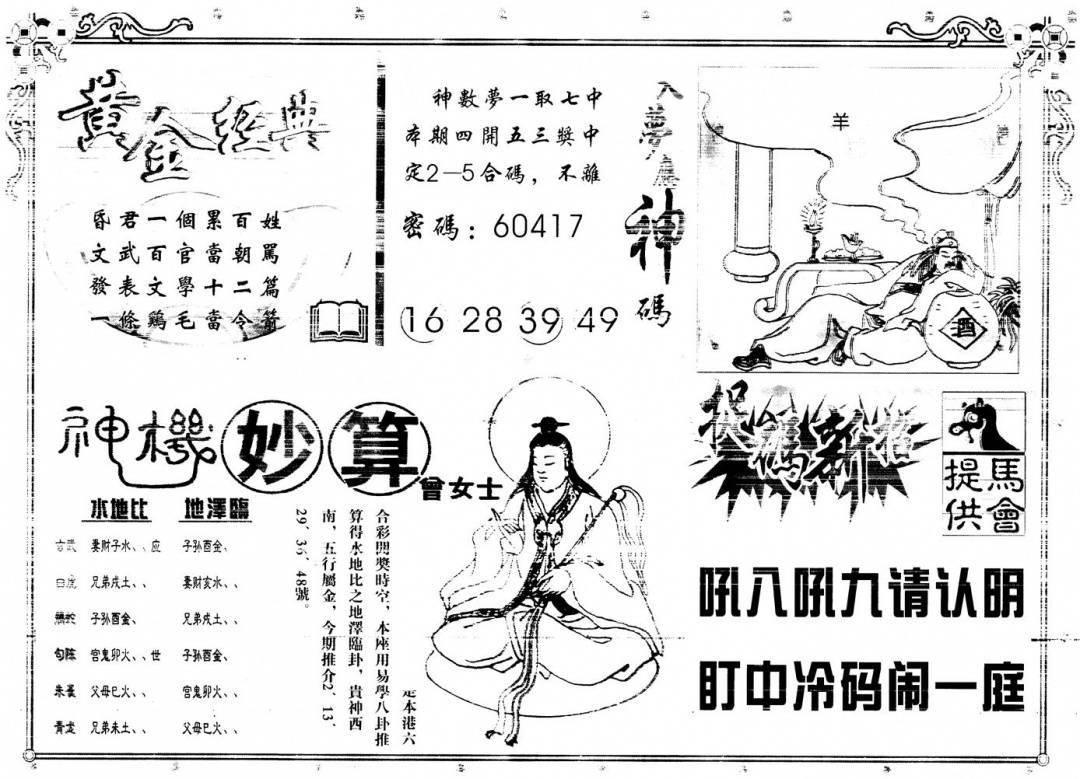 黃金經典
昏君一個累百姓
文武百官當朝罵
發表文學十二篇
一條鷄毛當令箭
神數夢一取七中
本期四開五三獎中
定2—5合碼，不離
密碼：60417
16 28 39 49
入夢
神
碼
羊
酒
神機妙算
曾女士
水地比 地澤臨
妻財子水、、应 子孙酉金、
白虎 兄弟戌土、、 妻财亥水、、
螣蛇 子孙酉金、 兄弟戌土、、
句陈 官鬼卯火、、世 子孙酉金、
朱雀 父母巳火、、 官鬼卯火、、
青龙 兄弟未土、、 父母巳火、、
是本港六
合彩開獎時空，本座用易學八卦推
算得水地比之地澤臨卦，貴神西
南，五行屬金，今期推介2、13、
29、36、48號。
捉碼新招
馬會
提供
吼八吼九请认明
盯中冷码闹一庭